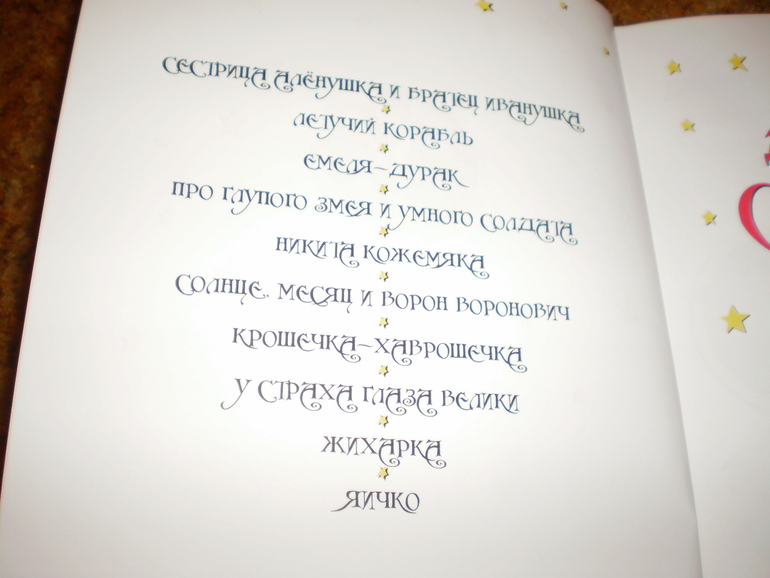 СЕСТРИЦА АЛЁНУШКА И БРАТЕЦ ИВАНУШКА
ЛЕТУЧИЙ КОРАБЛЬ
ЕМЕЛЯ-ДУРАК
ПРО ГЛУПОГО ЗМЕЯ И УМНОГО СОЛДАТА
НИКИТА КОЖЕМЯКА
СОЛНЦЕ, МЕСЯЦ И ВОРОН ВОРОНОВИЧ
КРОШЕЧКА-ХАВРОШЕЧКА
У СТРАХА ГЛАЗА ВЕЛИКИ
ЖИХАРКА
ЯИЧКО